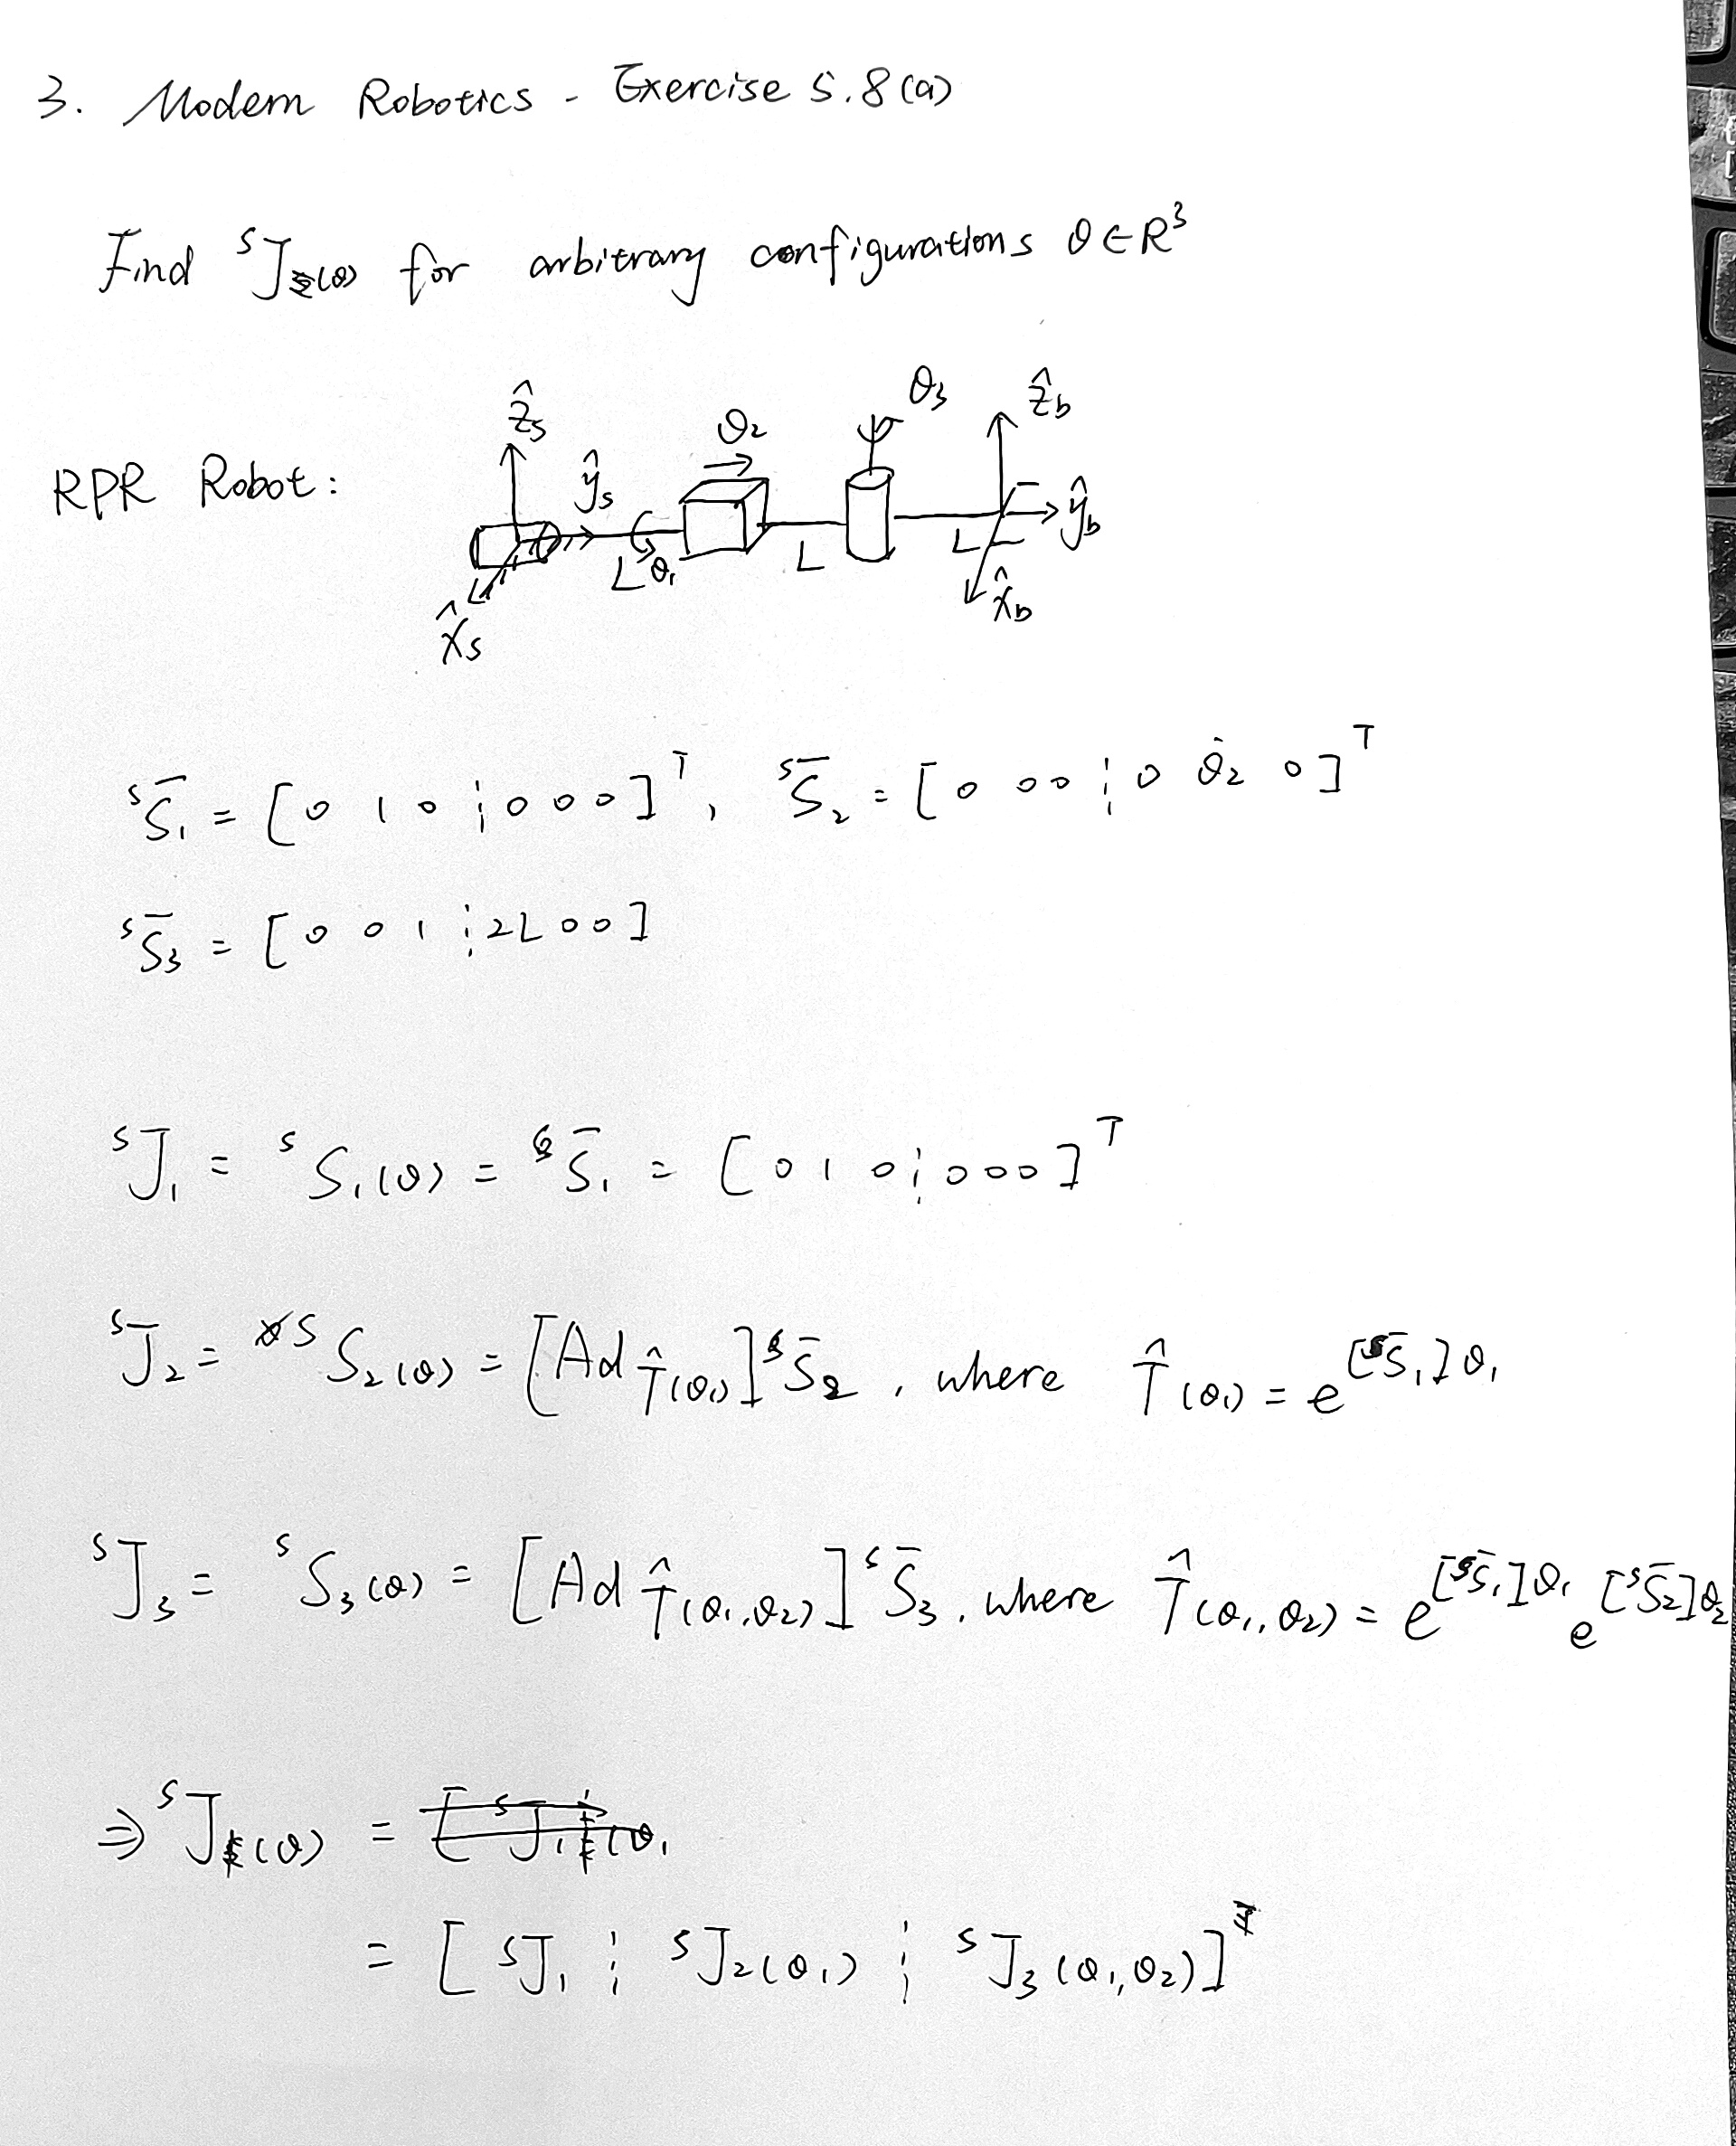 3. Modern Robotics - Exercise 5.8(a)
Find ˢJ(θ) for arbitrary configurations θ∈R³
RPR Robot:
ẑs ŷs x̂s L θ₁ θ₂ L θ₃ L ẑb ŷb x̂b
ˢS̄₁ = [0 1 0 ¦ 0 0 0]ᵀ, ˢS̄₂ = [0 0 0 ¦ 0 θ̇₂ 0]ᵀ
ˢS̄₃ = [0 0 1 ¦ 2L 0 0]
ˢJ₁ = ˢS₁(θ) = ˢS̄₁ = [0 1 0 ¦ 0 0 0]ᵀ
ˢJ₂ = ˢS₂(θ) = [Ad T̂(θ₁)] ˢS̄₂, where T̂(θ₁) = e^[ˢS̄₁]θ₁
ˢJ₃ = ˢS₃(θ) = [Ad T̂(θ₁,θ₂)] ˢS̄₃, where T̂(θ₁,θ₂) = e^[ˢS̄₁]θ₁ e^[ˢS̄₂]θ₂
⇒ ˢJ(θ) =
= [ˢJ₁ ¦ ˢJ₂(θ₁) ¦ ˢJ₃(θ₁,θ₂)]